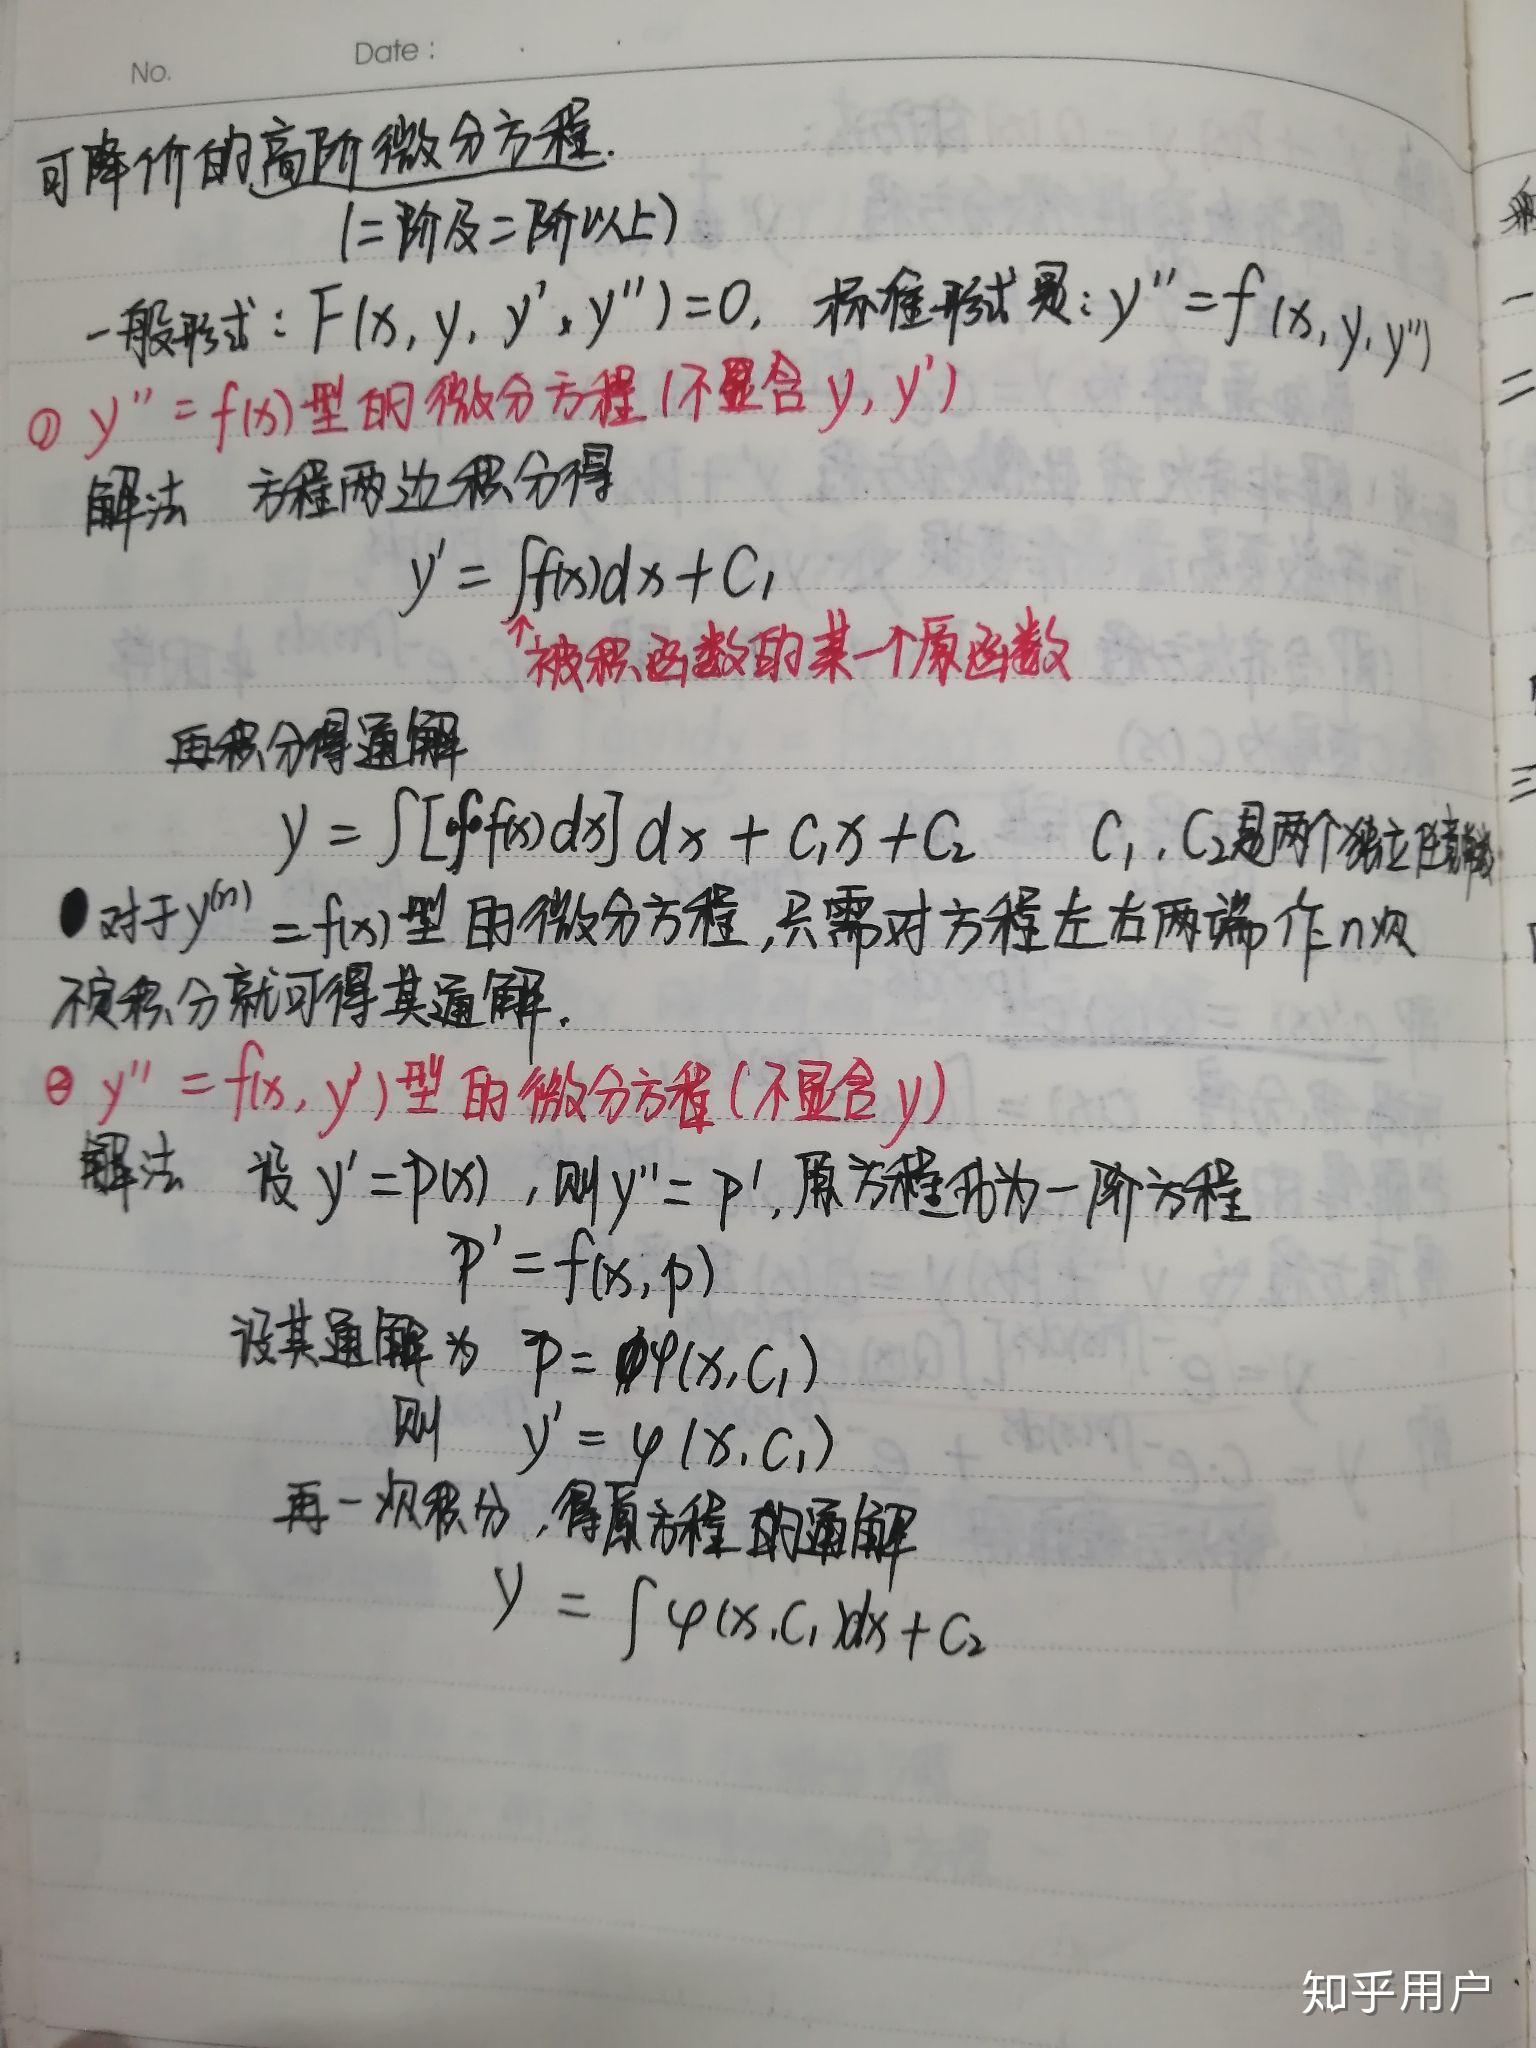 No.
Date:
可降价的高阶微分方程.
(二阶及二阶以上)
一般形式: F(x, y, y', y'')=0, 标准形式是: y''=f(x, y, y'')
① y''=f(x)型的微分方程(不显含y, y')
解法 方程两边积分得
y'=∫f(x)dx+C₁
↑被积函数的某一个原函数
再积分得通解
y=∫[∫f(x)dx]dx+C₁x+C₂ C₁, C₂是两个独立任意常数
●对于y⁽ⁿ⁾=f(x)型的微分方程,只需对方程左右两端作n次
不定积分就可得其通解.
② y''=f(x, y')型的微分方程(不显含y)
解法 设y'=p(x),则y''=p',原方程化为一阶方程
p'=f(x, p)
设其通解为 p=φ(x, C₁)
则 y'=φ(x, C₁)
再一次积分,得原方程的通解
y=∫φ(x, C₁)dx+C₂
知乎用户